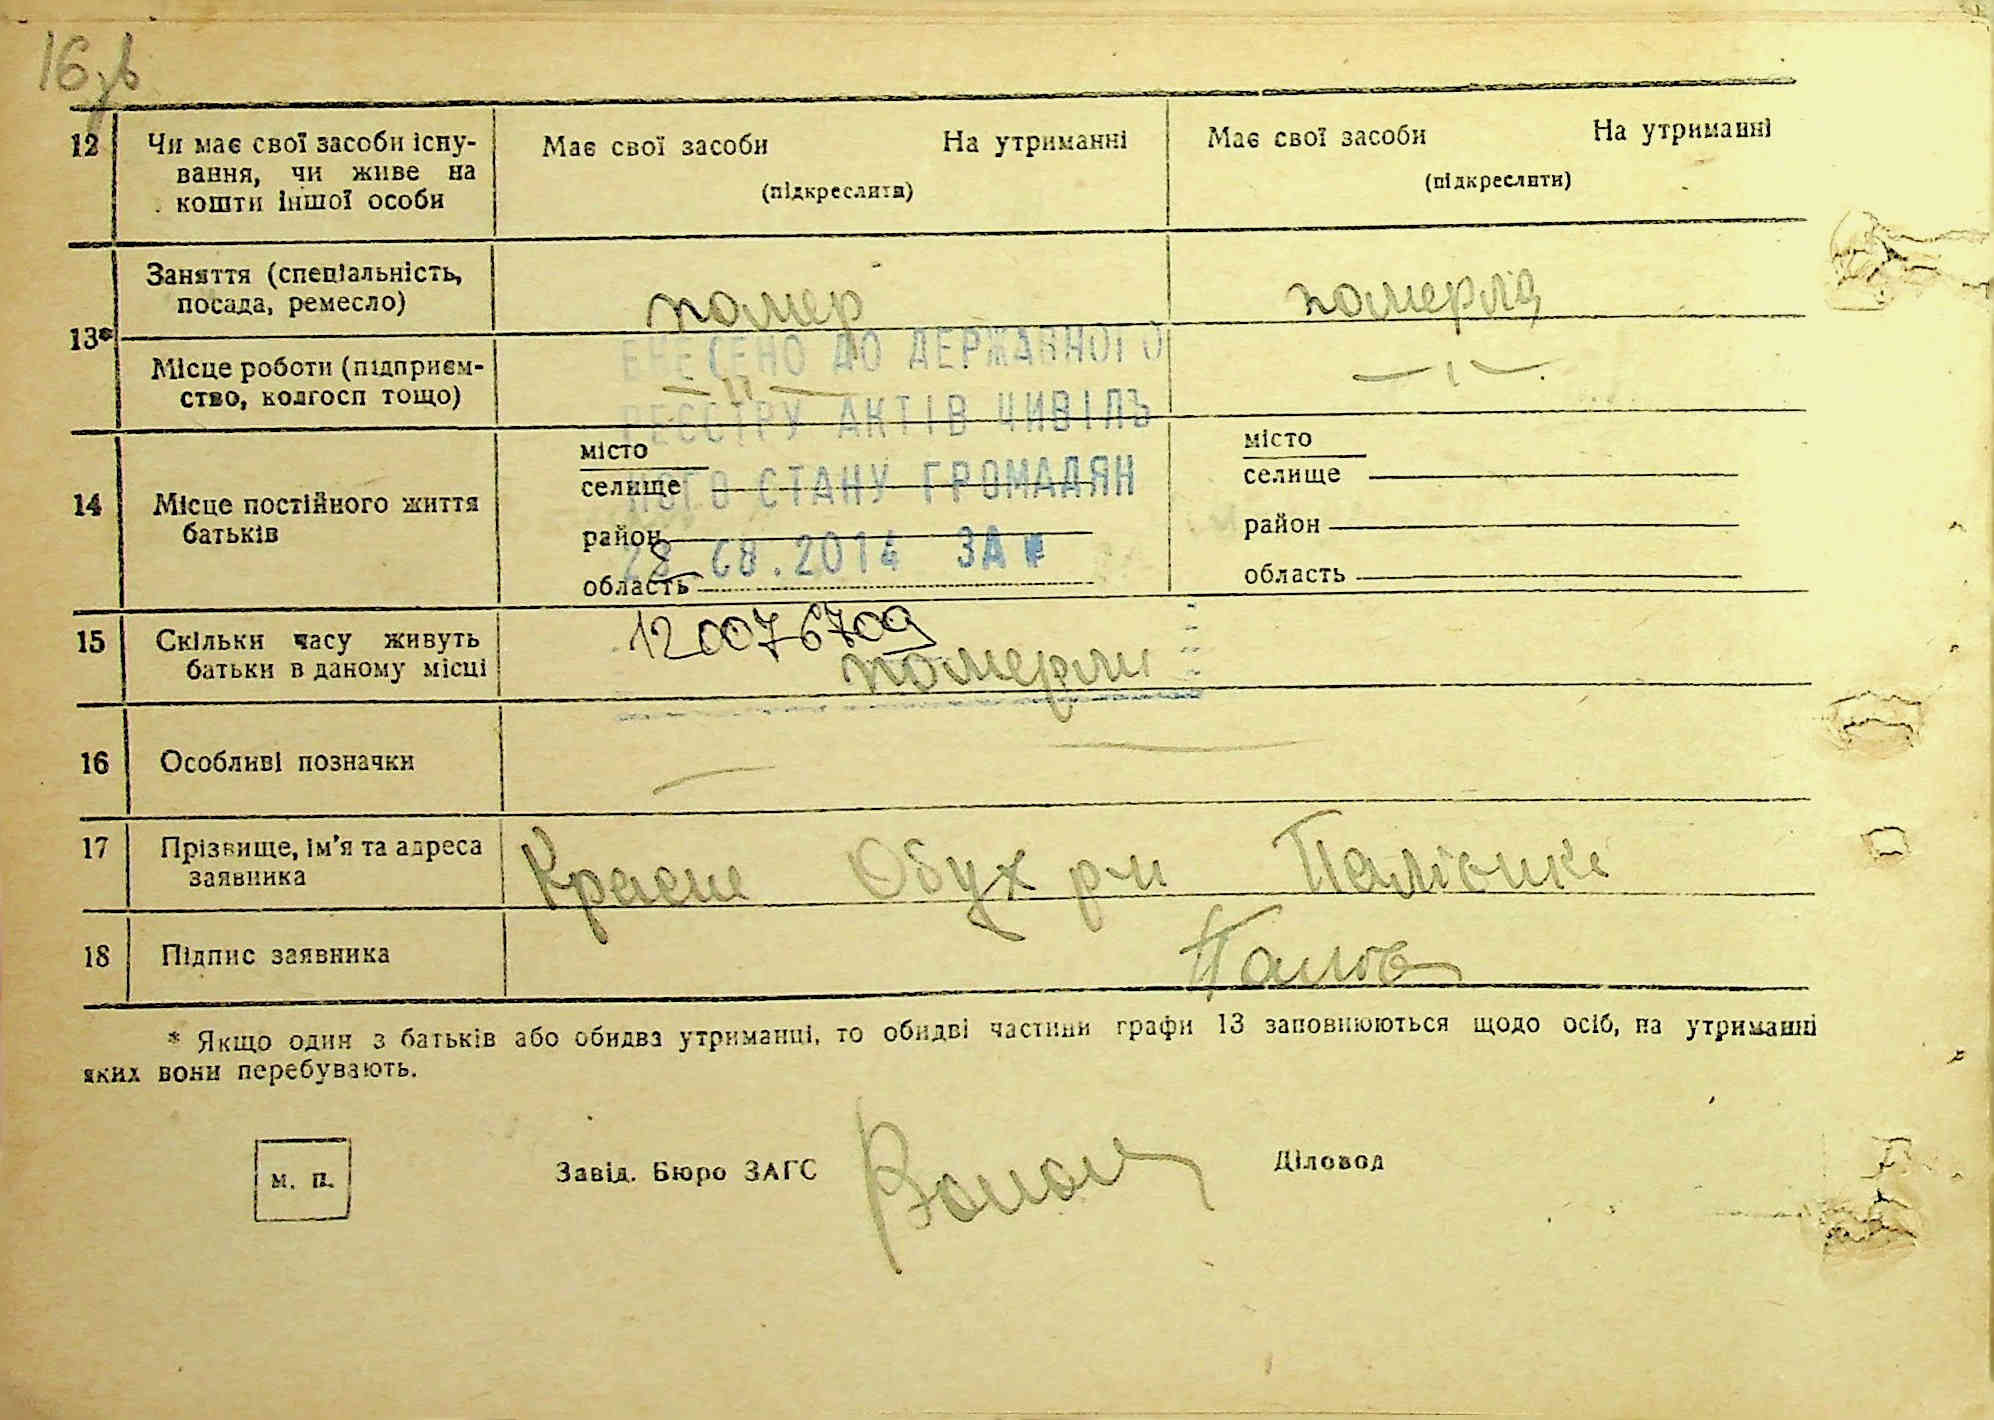 16 зв
12 Чи має свої засоби існу-
вання, чи живе на
кошти іншої особи
Має свої засоби На утриманні
(підкреслити)
Має свої засоби На утриманні
(підкреслити)
13*
Заняття (спеціальність,
посада, ремесло)
помер
померла
Місце роботи (підприєм-
ство, колгосп тощо)
— " —
— " —
ВНЕСЕНО ДО ДЕРЖАВНОГО
РЕЄСТРУ АКТІВ ЦИВІЛЬ
НОГО СТАНУ ГРОМАДЯН
28 08.2014 ЗА №
14 Місце постійного життя
батьків
місто
селище
район
область
місто
селище
район
область
15 Скільки часу живуть
батьки в даному місці
120076709
померли
16 Особливі позначки
17 Прізвище, ім'я та адреса
заявника
Обух р-н
18 Підпис заявника
* Якщо один з батьків або обидва утриманці, то обидві частини графи 13 заповнюються щодо осіб, на утриманні
яких вони перебувають.
м. п.
Завід. Бюро ЗАГС
Діловод